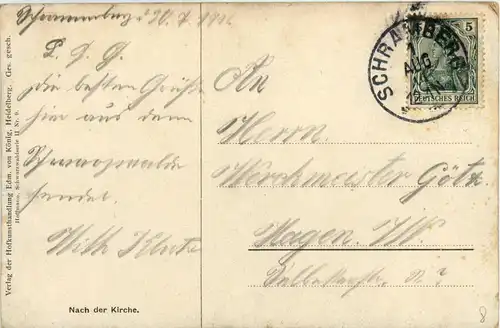 Schramberg d 30. 7. 1912
L. G. G.
die besten Grüße
hier aus dem
Schwarzwalde
sendet
Wilh
An
Herrn
Werkmeister Götz
Hagen i/W.
Nach der Kirche.
Verlag der Hofkunsthandlung Edm. von König, Heidelberg. Ges. gesch.
Hoffmann, Schwarzwaldserie II Nr. 9.
SCHRAMBERG
1
AUG
5
DEUTSCHES REICH
8